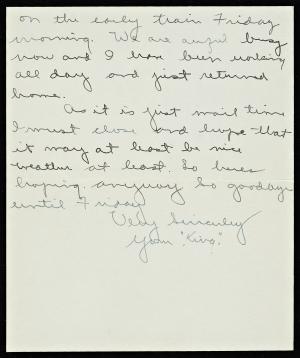 on the early train Friday
morning. We are awful busy
now and I have been working
all day and just returned
home.
As it is just mail time
I must close and hope that
it may at least be nice
weather at least. So heres
hoping anyway So goodbye
until Friday
Very Sincerely
"King".